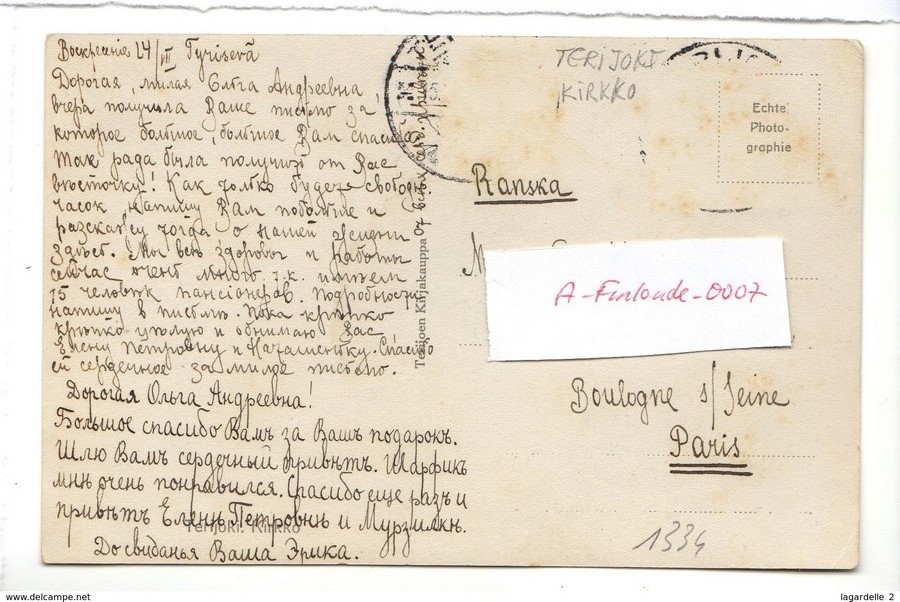 Воскресенie 24/VII Tyrisevä
Дорогая, милая Ольга Андреевна
вчера получила Ваше письмо за
которое большое, большое Вам спасибо
Так рада была получить от Вас
вѣсточку! Как только будет свободн.
часок, напишу Вам побольше и
разскажу тогда о нашей жизни
здѣсь. Мы всѣ здоровы и работы
сейчас очень много т.к. имѣем
15 человѣк пансiонеров. Подробности
напишу в письмѣ. Пока крѣпко
крѣпко цѣлую и обнимаю Вас
Елену Петровну и Наташеньку. Спасибо
ей сердечное за милое письмо.
Дорогая Ольга Андреевна!
Большое спасибо Вамъ за Вашъ подарокъ.
Шлю Вамъ сердечный привѣтъ. Шарфикъ
мнѣ очень понравился. Спасибо еще разъ и
привѣтъ Еленѣ Петровнѣ и Мурзилкѣ.
Terijoki. Kirkko
До свиданья Ваша Эрика.
Terijoen Kirjakauppa
от всѣх
TERIJOKI
KIRKKO
Echte
Photo-
graphie
Ranska
A-Finlande-0007
Boulogne s/Seine
Paris
1334
lagardelle 2